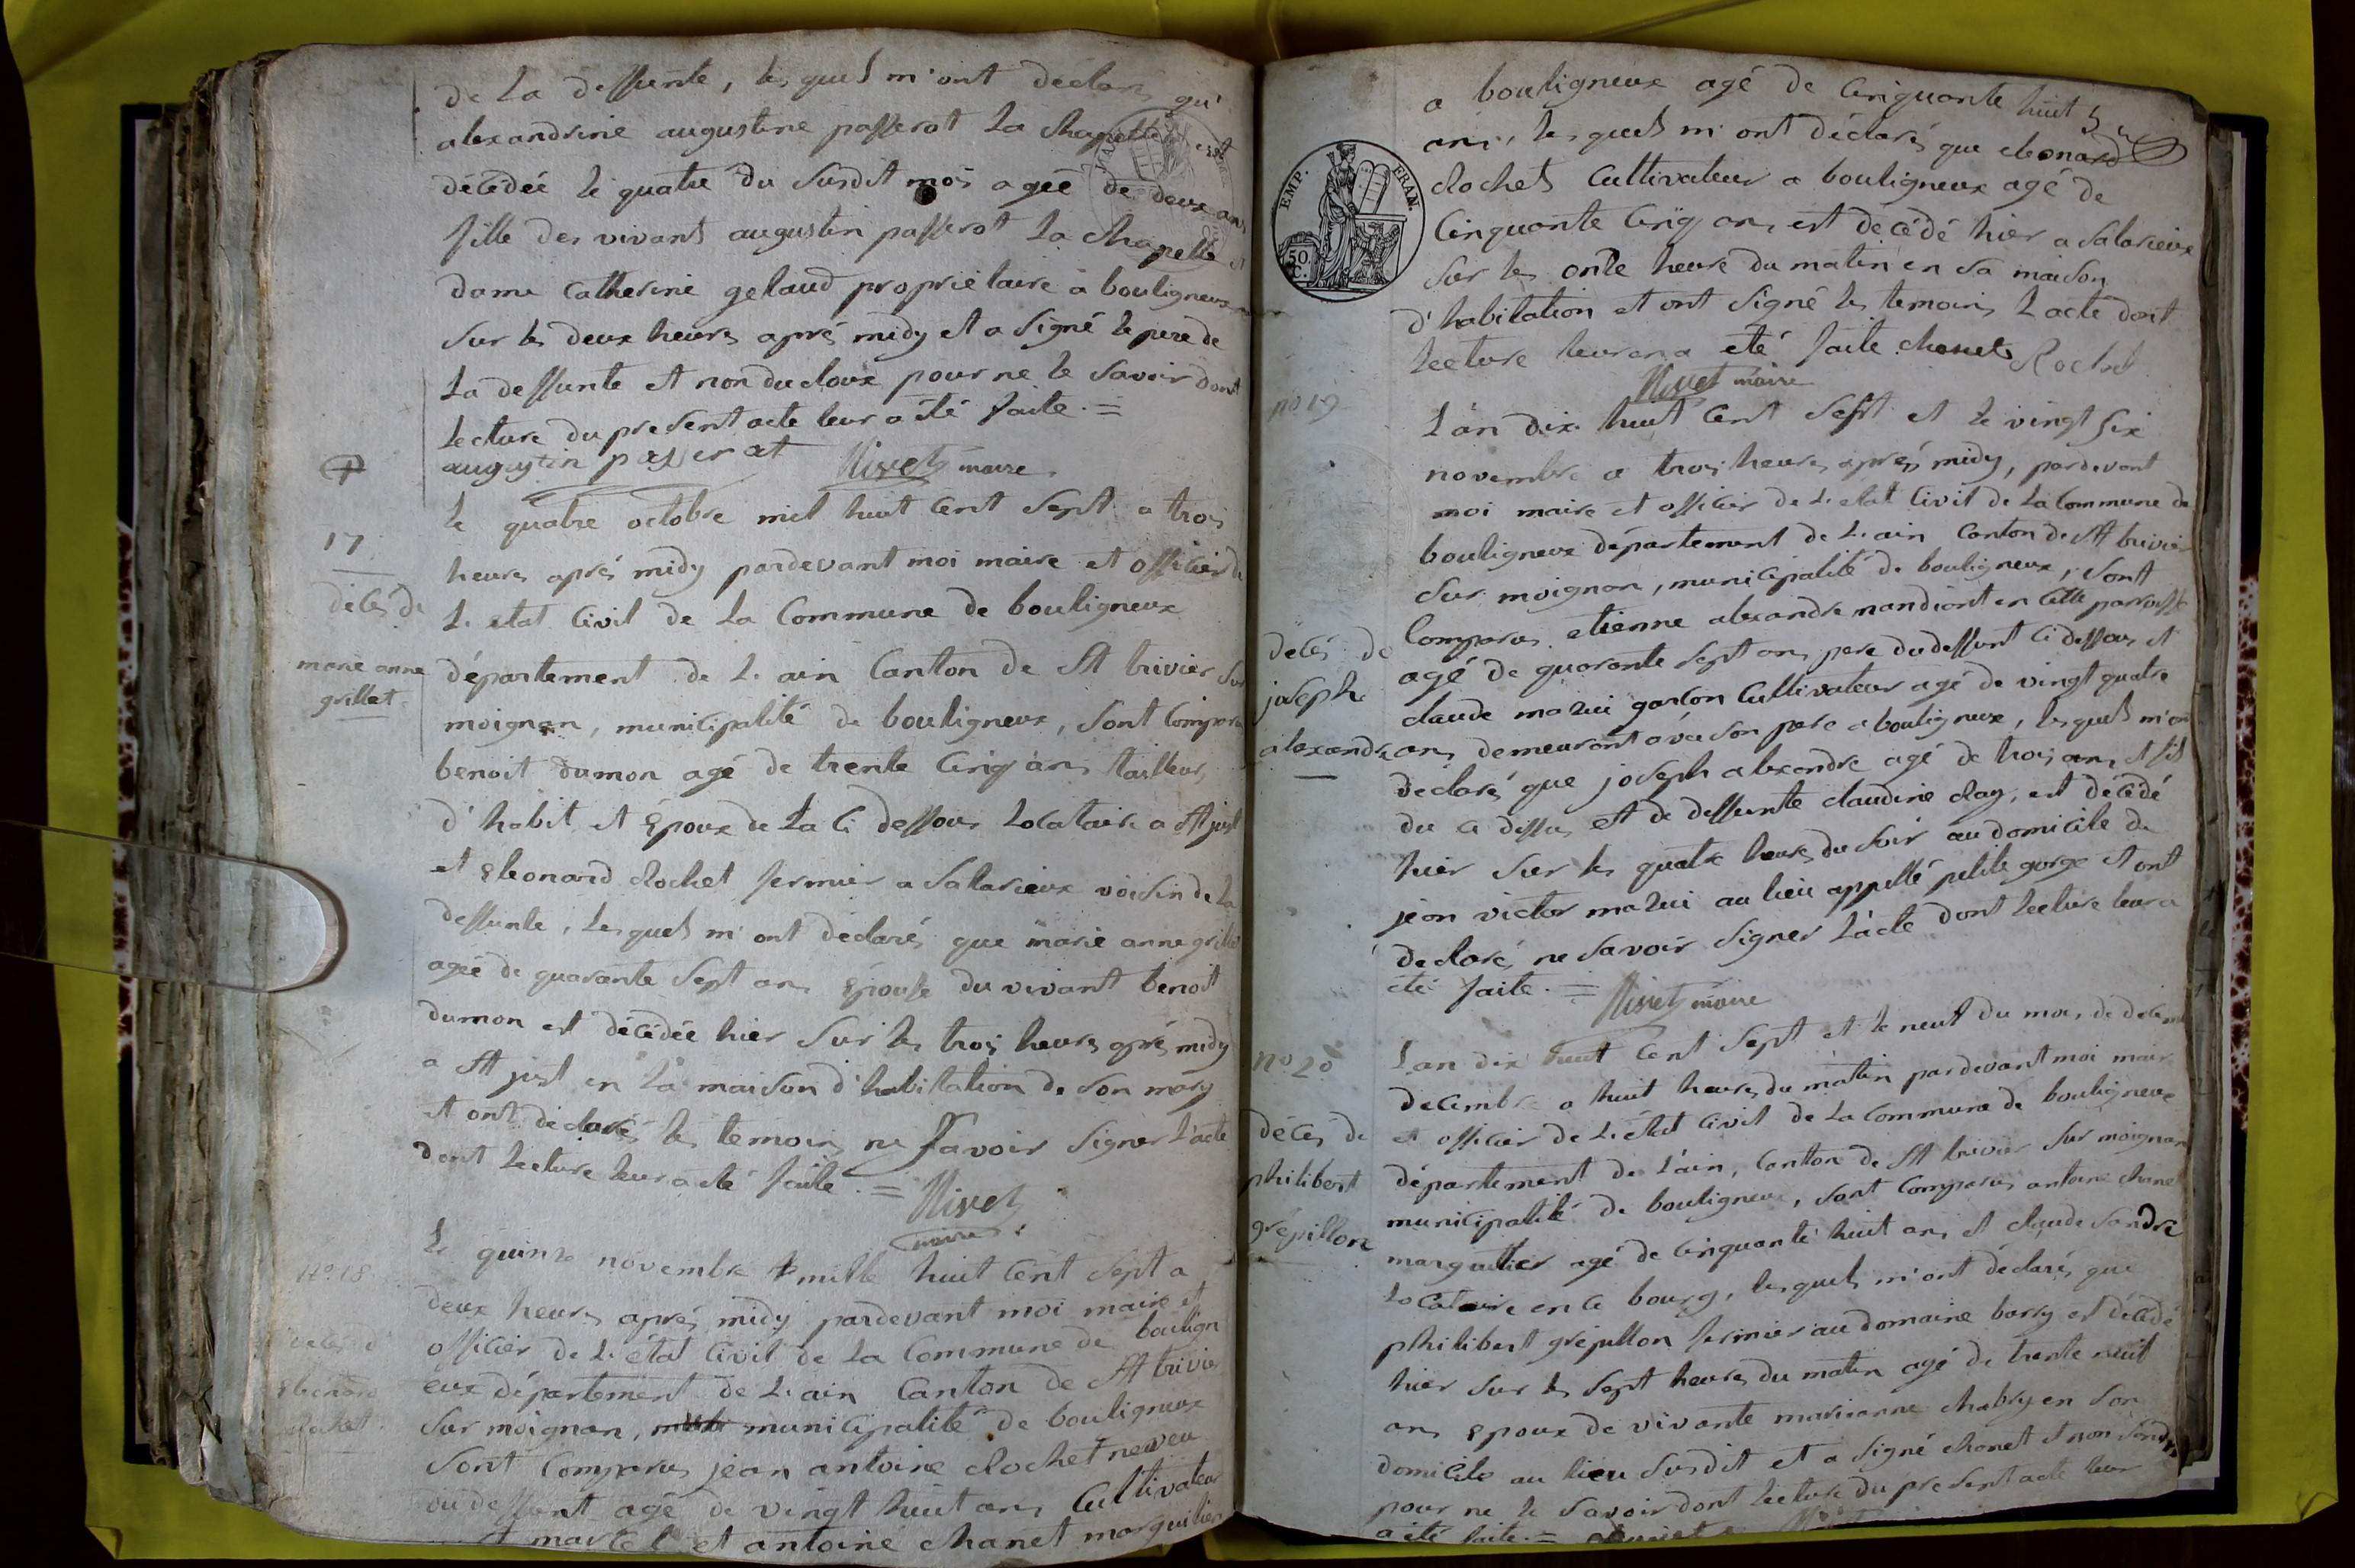 de la deffunte, les quels m'ont déclarés qu'
alexandrine augustine passerat la chapelle est
décédée le quatre du susdit mois agée de deux ans
fille des vivants augustin passerat la chapelle et
dame catherine gelaud proprietaire a bouligneux
sur les deux heures aprés midy et a signé le pere de
la deffunte et non ducloux pour ne le savoir dont
lecture du present acte leur a été faite. =
augustin passerat Nivet maire
17
décés de
marie anne
grillet
le quatre octobre mil huit cent sept a trois
heures aprés midy pardevant moi maire et officier de
L. etat civil de la Commune de bouligneux
département de L. ain Canton de St trivier sur
moignan, municipalité de bouligneux, sont comparus
benoit dumon agé de trente cinq ans tailleur
d'habit et époux de la ci dessous locataire a St just
et éleonard clochet fermier a Salarieux voisin de la
deffunte, les quels m'ont declarés que marie anne grillet
agée de quarante sept ans épouse du vivant benoit
dumon est décédée hier sur les trois heures aprés midy
a St just en la maison d'habitation de son mary
et ont déclarés les temoins ne savoir signer l'acte
dont lecture leur a eté faite. = Nivet
maire
N°. 18
décés d
éléonard
clochet
le quinze novembre mille huit cent sept a
deux heures aprés midy pardevant moi maire et
officier de L. état civil de la Commune de boulign
eux département de L. ain Canton de St trivier
sur moignan, municipalité de bouligneux
sont comparus jean antoine clochet neveu
du deffunt agé de vingt huit ans cultivateur
St martel et antoine chanet marguilier
a bouligneux agé de cinquante huit
ans, les quels m'ont déclarés que éleonard
clochet cultivateur a bouligneux agé de
EMP. FRAN.
50 C.
cinquante cinq ans est décédé hier a Salarieux
sur les onze heure du matin en sa maison
d'habitation et ont signé les temoins l'acte dont
lecture leur en a eté faite chanet Rochet
Nivet maire
n° 19
décés de
joseph
alexandre
L'an dix huit cent sept et le vingt six
novembre a trois heures aprés midy, pardevant
moi maire et officier de L. etat civil de la Commune de
bouligneux département de L. ain canton de St trivier
sur moignan, municipalité de bouligneux, sont
comparus etienne alexandre mandiant en cette parroisse
agé de quarante sept ans pere du deffunt ci dessous et
claude mazui garcon cultivateur agé de vingt quatre
ans demeurant avec son pere a bouligneux, lesquels m'ont
declarés que joseph alexandre agé de trois ans et fils
du ci dessus et de deffunte claudine clay, est décédé
hier sur les quatre heures du soir au domicile de
jean victor mazui au lieu appellé petite gorge et ont
declarés ne savoir signer l'acte dont lecture leur a
eté faite. = Nivet maire
n° 20
décés de
philibert
grépillon
L'an dix huit cent sept et le neuf du mois de décembre
decembre a huit heures du matin pardevant moi maire
et officier de L. état civil de la Commune de bouligneux
département de l'ain, canton de St trivier sur moignan
municipalité de bouligneux, sont comparus antoine chanet
marguilier agé de cinquante huit ans et claude sandre
locataire en ce bourg, lesquels m'ont déclarés que
philibert grépillon fermier au domaine barry est décédé
hier sur les sept heures du matin agé de trente neuf
ans époux de vivante marieanne chabry en son
domicile au lieu susdit et a signé chanet et non sandre
pour ne le savoir dont lecture du present acte leur
a été faite. =